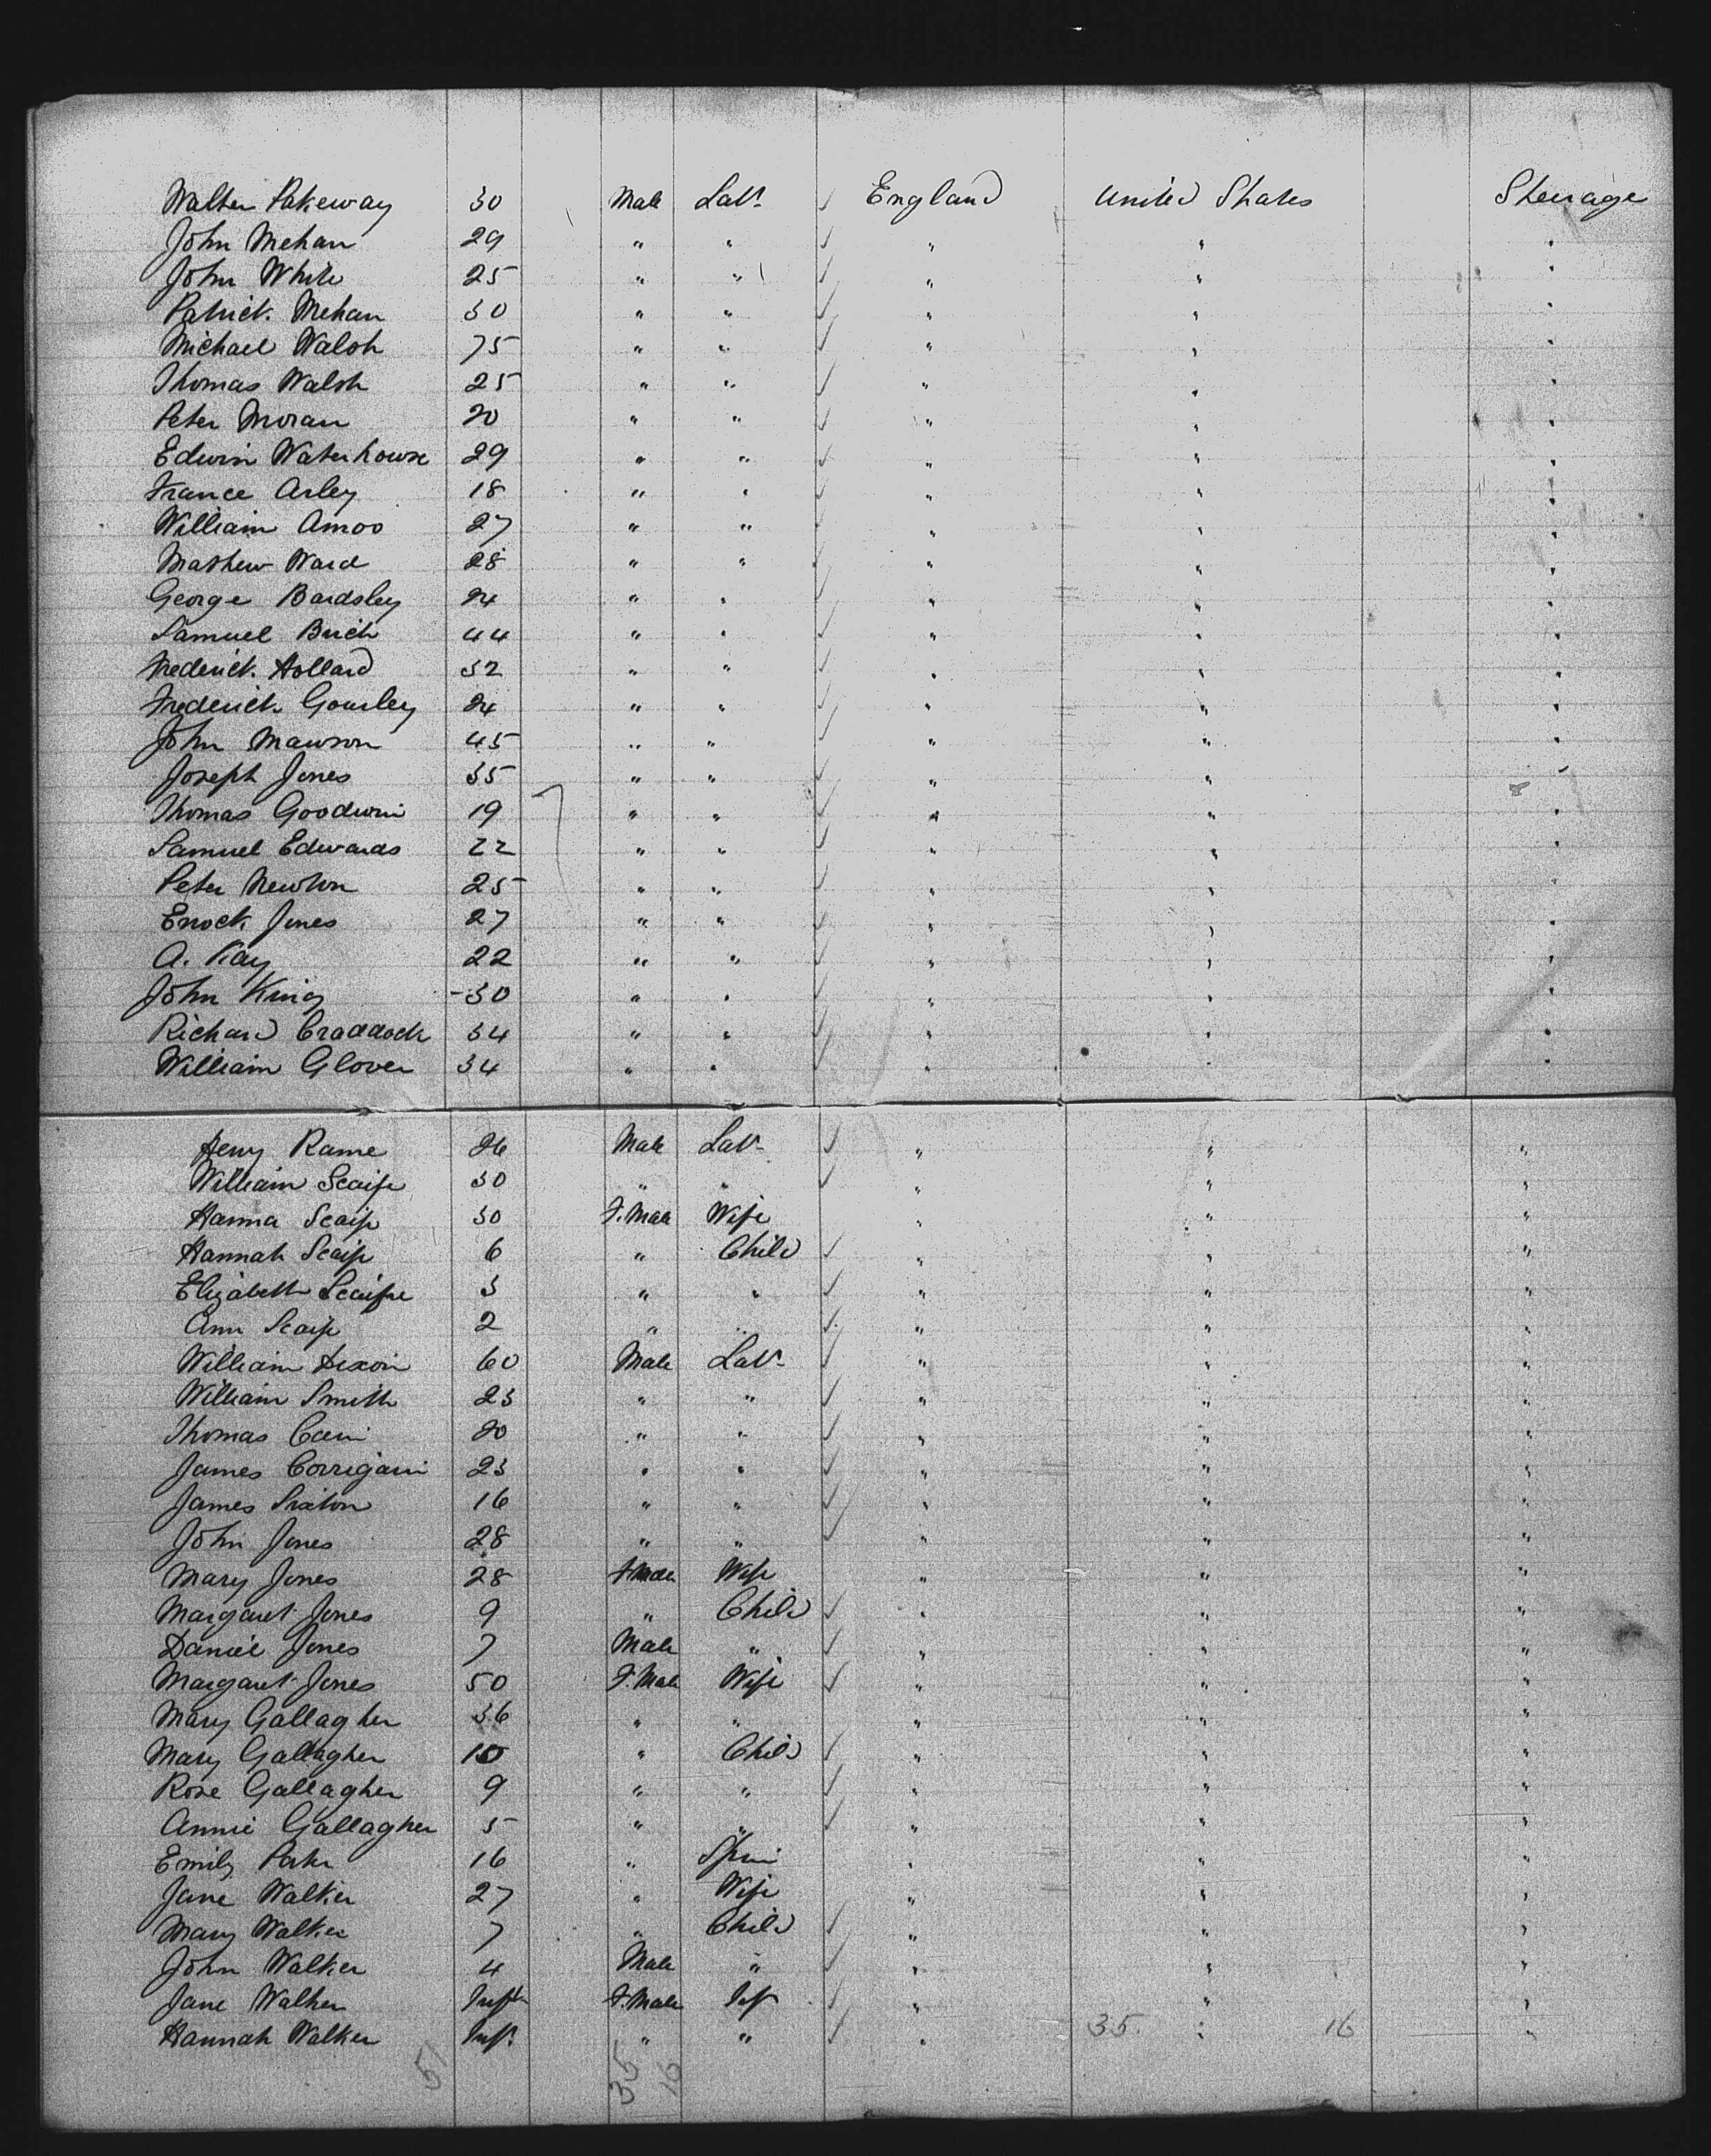 Walter Pakeway 30 Male Labr England United States Steerage
John Mehan 29 " " " " "
John White 25 " " " " "
Patrick Mehan 30 " " " " "
Michael Walsh 75 " " " " "
Thomas Walsh 25 " " " " "
Peter Moran 20 " " " " "
Edwin Waterhouse 29 " " " " "
France Arley 18 " " " " "
William Amoo 27 " " " " "
Mathew Ward 28 " " " " "
George Bardsley 24 " " " " "
Samuel Birch 44 " " " " "
Frederick Hollard 32 " " " " "
Frederick Gourley 24 " " " " "
John Mawson 45 " " " " "
Joseph Jones 35 " " " " "
Thomas Goodwin 19 " " " " "
Samuel Edwards 22 " " " " "
Peter Newton 25 " " " " "
Enock Jones 27 " " " " "
A. Kay 22 " " " " "
John King 30 " " " " "
Richard Craddock 34 " " " " "
William Glover 34 " " " " "
Henry Rame 26 Male Labr " " "
William Scaife 30 " " " " "
Hanna Scaife 30 F.Male Wife " " "
Hannah Scaife 6 " Child " " "
Elizabeth Scaife 3 " " " " "
Ann Scaife 2 " " " " "
William Dixon 60 Male Labr " " "
William Smith 23 " " " " "
Thomas 20 " " " " "
James Corrigan 23 " " " " "
James Sixton 16 " " " " "
John Jones 28 " " " " "
Mary Jones 28 F.Male Wife " " "
Margaret Jones 9 " Child " " "
Daniel Jones 7 Male " " " "
Margaret Jones 50 F.Male Wife " " "
Mary Gallagher 36 " " " " "
Mary Gallagher 10 " Child " " "
Rose Gallagher 9 " " " " "
Annie Gallagher 5 " " " " "
Emily 16 " Spin " " "
Jane Walker 27 " Wife " " "
Mary Walker 7 " Child " " "
John Walker 4 Male " " " "
Jane Walker Inft F.Male Inf " " "
Hannah Walker Inf. " " " 35 " 16 "
51 35 16